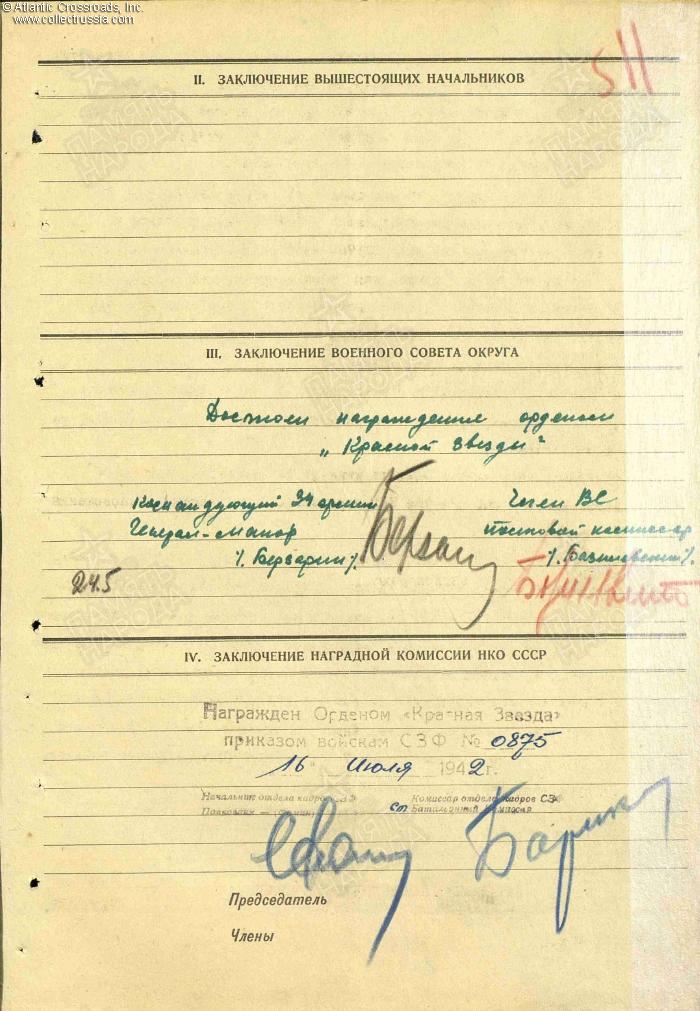 © Atlantic Crossroads, Inc.
www.collectrussia.com
511
II. ЗАКЛЮЧЕНИЕ ВЫШЕСТОЯЩИХ НАЧАЛЬНИКОВ
ПАМЯТЬ НАРОДА
III. ЗАКЛЮЧЕНИЕ ВОЕННОГО СОВЕТА ОКРУГА
Достоин награждения орденом
„Красной Звезды"
Командующий 34 армии Член ВС
Генерал-Майор комиссар
/. Берзарин/. /. Базилевский/.
245
IV. ЗАКЛЮЧЕНИЕ НАГРАДНОЙ КОМИССИИ НКО СССР
Награжден Орденом «Красная Звезда»
приказом войскам СЗФ № 0875
16 " Июля 1942 г.
Начальник отдела кадров СЗФ Комиссар отдела кадров СЗ
Полковник — ст Батальонный Комиссар
Председатель
Члены